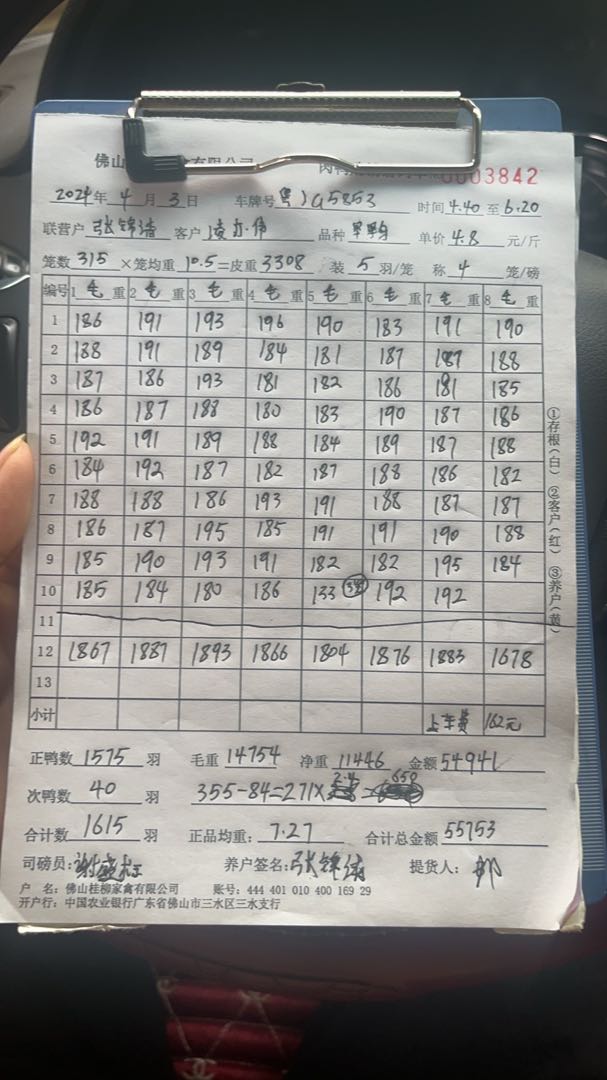 佛山 有限公司
0003842
2024年 4 月 3 日 车牌号 G5853 时间 4.40 至 6.20
联营户 张锦清 客户 凌 伟 品种 单价 4.8 元/斤
笼数 315 ×笼均重 10.5 =皮重 3308 装 5 羽/笼 称 4 笼/磅
编号 1 毛 重 2 毛 重 3 毛 重 4 毛 重 5 毛 重 6 毛 重 7 毛 重 8 毛 重
1 186 191 193 196 190 183 191 190
2 188 191 189 184 181 187 187 188
3 187 186 193 181 182 186 181 185
4 186 187 188 180 183 190 187 186
5 192 191 189 188 184 189 187 188
6 184 192 187 182 187 188 186 182
7 188 188 186 193 191 188 187 187
8 186 187 195 185 191 191 190 188
9 185 190 193 191 182 182 195 184
10 185 184 180 186 133 192 192
11
12 1867 1887 1893 1866 1804 1876 1883 1678
13
小计 上车费 162元
①存根(白) ②客户(红) ③养户(黄)
正鸭数 1575 羽 毛重 14754 净重 11446 金额 54941
次鸭数 40 羽 355-84=271× 2.4 = 650
合计数 1615 羽 正品均重: 7.27 合计总金额 55753
司磅员: 养户签名: 张锦清 提货人:
户 名: 佛山桂柳家禽有限公司 账号: 444 401 010 400 169 29
开户行: 中国农业银行广东省佛山市三水区三水支行